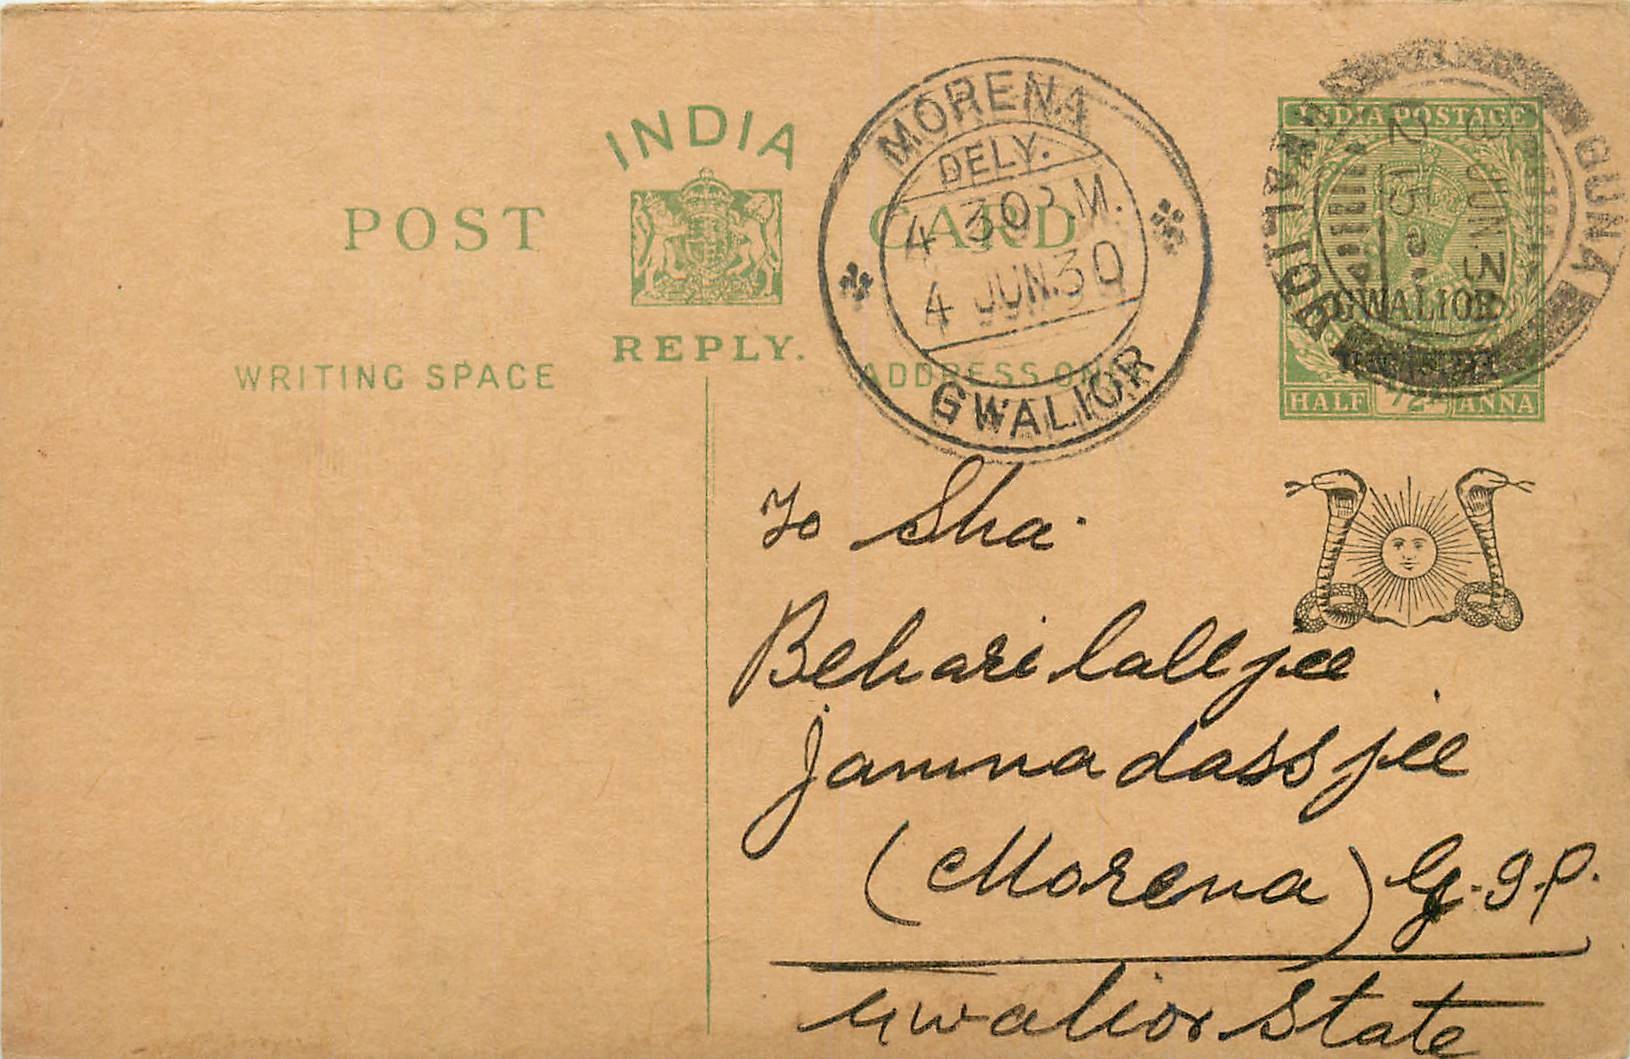 INDIA
POST CARD
REPLY.
WRITING SPACE
ADDRESS ON
MORENA
DELY.
4 30 P.M.
4 JUN.30
GWALIOR
INDIA POSTAGE
GUNA
GWALIOR
2 JUN.30
GWALIOR
HALF 1/2 ANNA
To Sha.
Beharilalljee
Jamnadassjee
(Morena) G.I.P.
Gwalior State